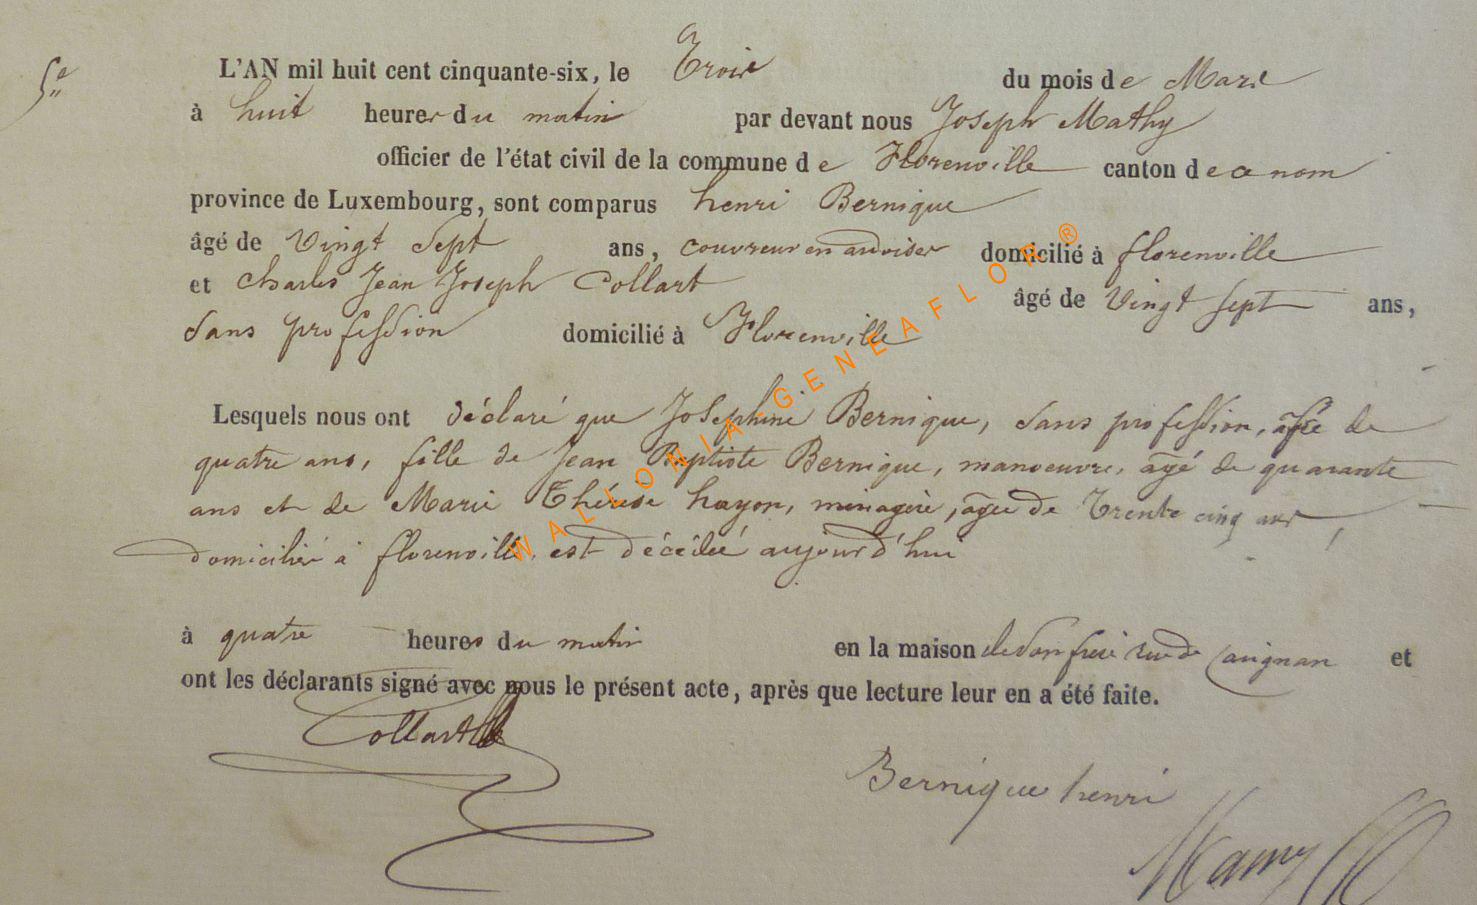 5e
L'AN mil huit cent cinquante-six, le Trois du mois de Mars
à huit heures du matin par devant nous Joseph Mathy
officier de l'état civil de la commune de Florenville canton de ce nom
province de Luxembourg, sont comparus henri Bernique
âgé de Vingt Sept ans, couvreur en ardoises domicilié à florenville
et Charles Jean Joseph Collart âgé de Vingt sept ans,
Sans profession domicilié à Florenville
Lesquels nous ont déclaré que Josephine Bernique, Sans profession, agée de
quatre ans, fille de Jean Baptiste Bernique, manoeuvre, agé de quarante
ans et de Marie Thérèse hayon, ménagère, agée de Trente cinq ans,
domiciliés à florenville, est décédée aujourd'hui
à quatre heures du matin en la maison de son rue de Carignan et
ont les déclarants signé avec nous le présent acte, après que lecture leur en a été faite.
Collart
Bernique henri
WALLONIA-GENEAFLOR®